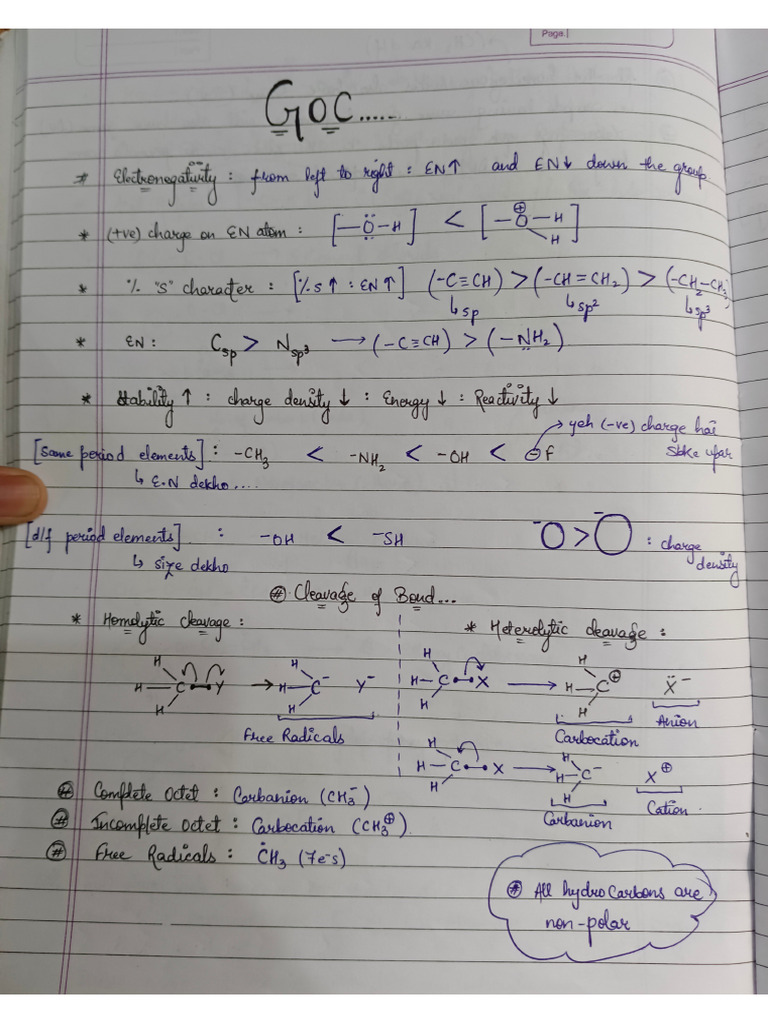 Page.
GOC.....
* Electronegativity : from left to right : EN↑ and EN↓ down the group
* (+ve) charge on EN atom : [—Ö—H] < [—O⊕—H H]
* % "S" character : [%S↑ : EN↑] (-C≡CH) > (-CH=CH₂) > (-CH₂-CH₃)
↳sp ↳sp² ↳sp³
* EN : Csp > Nsp³ ⟶ (-C≡CH) > (-NH₂)
* Stability ↑ : charge density ↓ : Energy ↓ : Reactivity ↓
→ yeh (-ve) charge hai
[Same period elements] : -CH₃ < -NH₂ < -OH < ⊖F sbke upar
↳ E.N dekho....
[d/f period elements] : ⁻OH < ⁻SH ⁻O > ⁻O : charge density
↳ size dekho
# Cleavage of Bond...
* Homolytic cleavage :
H H H—C••Y → H H H—C⁻ Y⁻
Free Radicals
* Heterolytic cleavage :
H H H—C••X ⟶ H H H—C⊕ Ẍ⁻
Carbocation Anion
H H H—C••X ⟶ H H H—C⁻ X⊕
Carbanion Cation
# Complete Octet : Carbanion (CH₃⁻)
# Incomplete Octet : Carbocation (CH₃⊕)
# Free Radicals : ĊH₃ (7e⁻s)
# All hydrocarbons are
non-polar